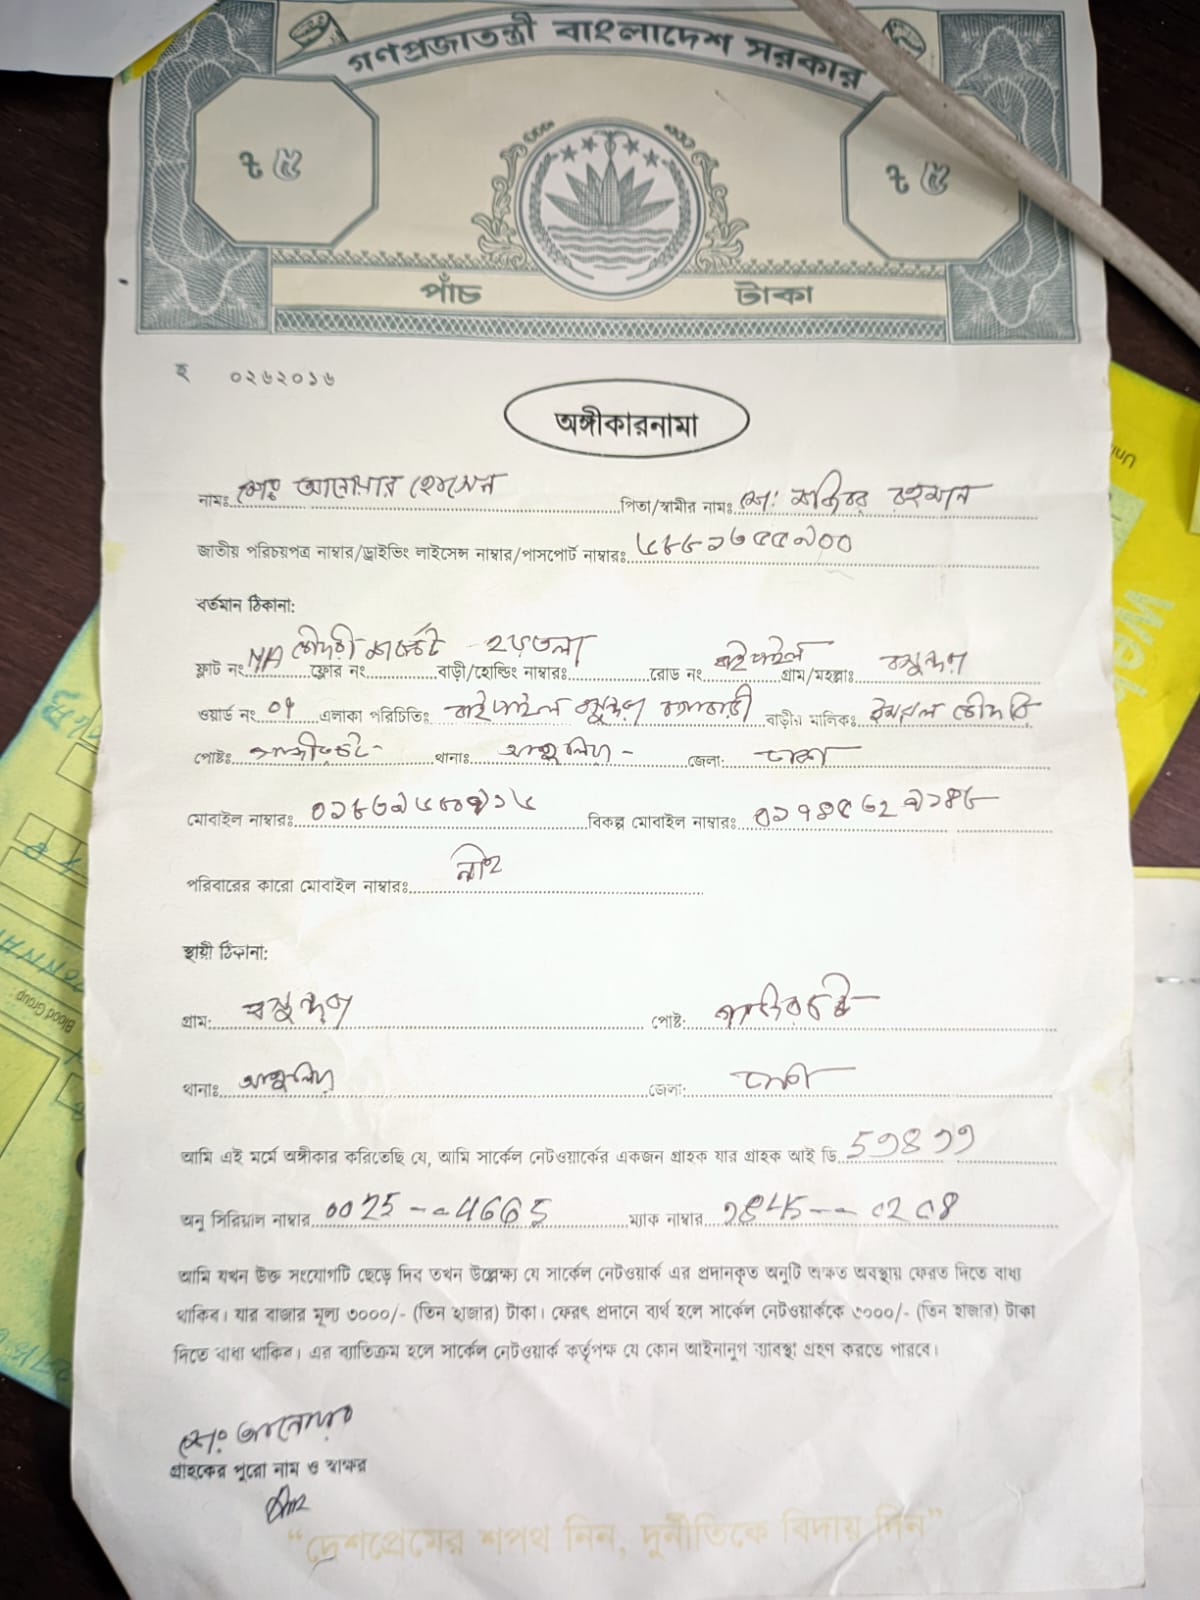 গণপ্রজাতন্ত্রী বাংলাদেশ সরকার
ট ৫ ট ৫
পাঁচ টাকা
হ ০২৬২০১৬
অঙ্গীকারনামা
নামঃ মোঃ আনোয়ার হোসেন পিতা/স্বামীর নামঃ মো: মজিবর রহমান
জাতীয় পরিচয়পত্র নাম্বার/ড্রাইভিং লাইসেন্স নাম্বার/পাসপোর্ট নাম্বারঃ
বর্তমান ঠিকানা:
ফ্লাট নং N/A চৌধুরী মার্কেট ফ্লোর নং বাড়ী/হোল্ডিং নাম্বারঃ রোড নং বাইপাইল গ্রাম/মহল্লাঃ বসুন্ধরা
ওয়ার্ড নং ০৭ এলাকা পরিচিতিঃ বাইপাইল বসুন্ধরা বাড়ীর মালিকঃ চৌধুরী
পোষ্টঃ থানাঃ আশুলিয়া - জেলা: ঢাকা
মোবাইল নাম্বারঃ বিকল্প মোবাইল নাম্বারঃ
পরিবারের কারো মোবাইল নাম্বারঃ নাই
স্থায়ী ঠিকানা:
গ্রাম: বসুন্ধরা পোষ্ট:
থানাঃ আশুলিয়া জেলা: ঢাকা
আমি এই মর্মে অঙ্গীকার করিতেছি যে, আমি সার্কেল নেটওয়ার্কের একজন গ্রাহক যার গ্রাহক আই ডি.
অনু সিরিয়াল নাম্বার 0025 -- 4665 ম্যাক নাম্বার
আমি যখন উক্ত সংযোগটি ছেড়ে দিব তখন উল্লেক্ষ্য যে সার্কেল নেটওয়ার্ক এর প্রদানকৃত অনুটি অক্ষত অবস্থায় ফেরত দিতে বাধ্য
থাকিব। যার বাজার মূল্য ৩০০০/- (তিন হাজার) টাকা। ফেরৎ প্রদানে ব্যর্থ হলে সার্কেল নেটওয়ার্ককে ৩০০০/- (তিন হাজার) টাকা
দিতে বাধ্য থাকিব। এর ব্যতিক্রম হলে সার্কেল নেটওয়ার্ক কর্তৃপক্ষ যে কোন আইনানুগ ব্যবস্থা গ্রহণ করতে পারবে।
মোঃ আনোয়ার
গ্রাহকের পুরো নাম ও স্বাক্ষর
“দেশপ্রেমের শপথ নিন, দুর্নীতিকে বিদায় দিন”
Blood Group: